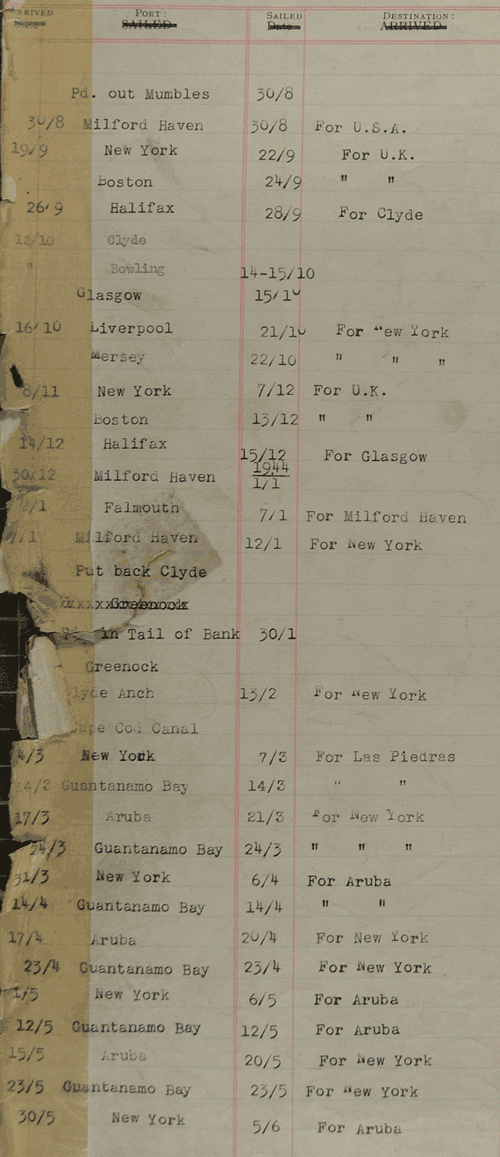 ARRIVED PORT: SAILED DESTINATION:
Date SAILED Date ARRIVED
Pd. out Mumbles 30/8
30/8 Milford Haven 30/8 For U.S.A.
19/9 New York 22/9 For U.K.
Boston 24/9 " "
26/9 Halifax 28/9 For Clyde
12/10 Clyde
" Bowling 14-15/10
Glasgow 15/10
16/10 Liverpool 21/10 For New York
Mersey 22/10 " " "
8/11 New York 7/12 For U.K.
Boston 13/12 " "
14/12 Halifax 15/12 For Glasgow
1944
30/12 Milford Haven 1/1
/1 Falmouth 7/1 For Milford Haven
/1 Milford Haven 12/1 For New York
Put back Clyde
Greenock
Pd. in Tail of Bank 30/1
Greenock
Clyde Anch 13/2 For New York
Cape Cod Canal
4/3 New York 7/3 For Las Piedras
14/3 Guantanamo Bay 14/3 " "
17/3 Aruba 21/3 For New York
24/3 Guantanamo Bay 24/3 " " "
31/3 New York 6/4 For Aruba
14/4 Guantanamo Bay 14/4 " "
17/4 Aruba 20/4 For New York
23/4 Guantanamo Bay 23/4 For New York
1/5 New York 6/5 For Aruba
12/5 Guantanamo Bay 12/5 For Aruba
15/5 Aruba 20/5 For New York
23/5 Guantanamo Bay 23/5 For New York
30/5 New York 5/6 For Aruba